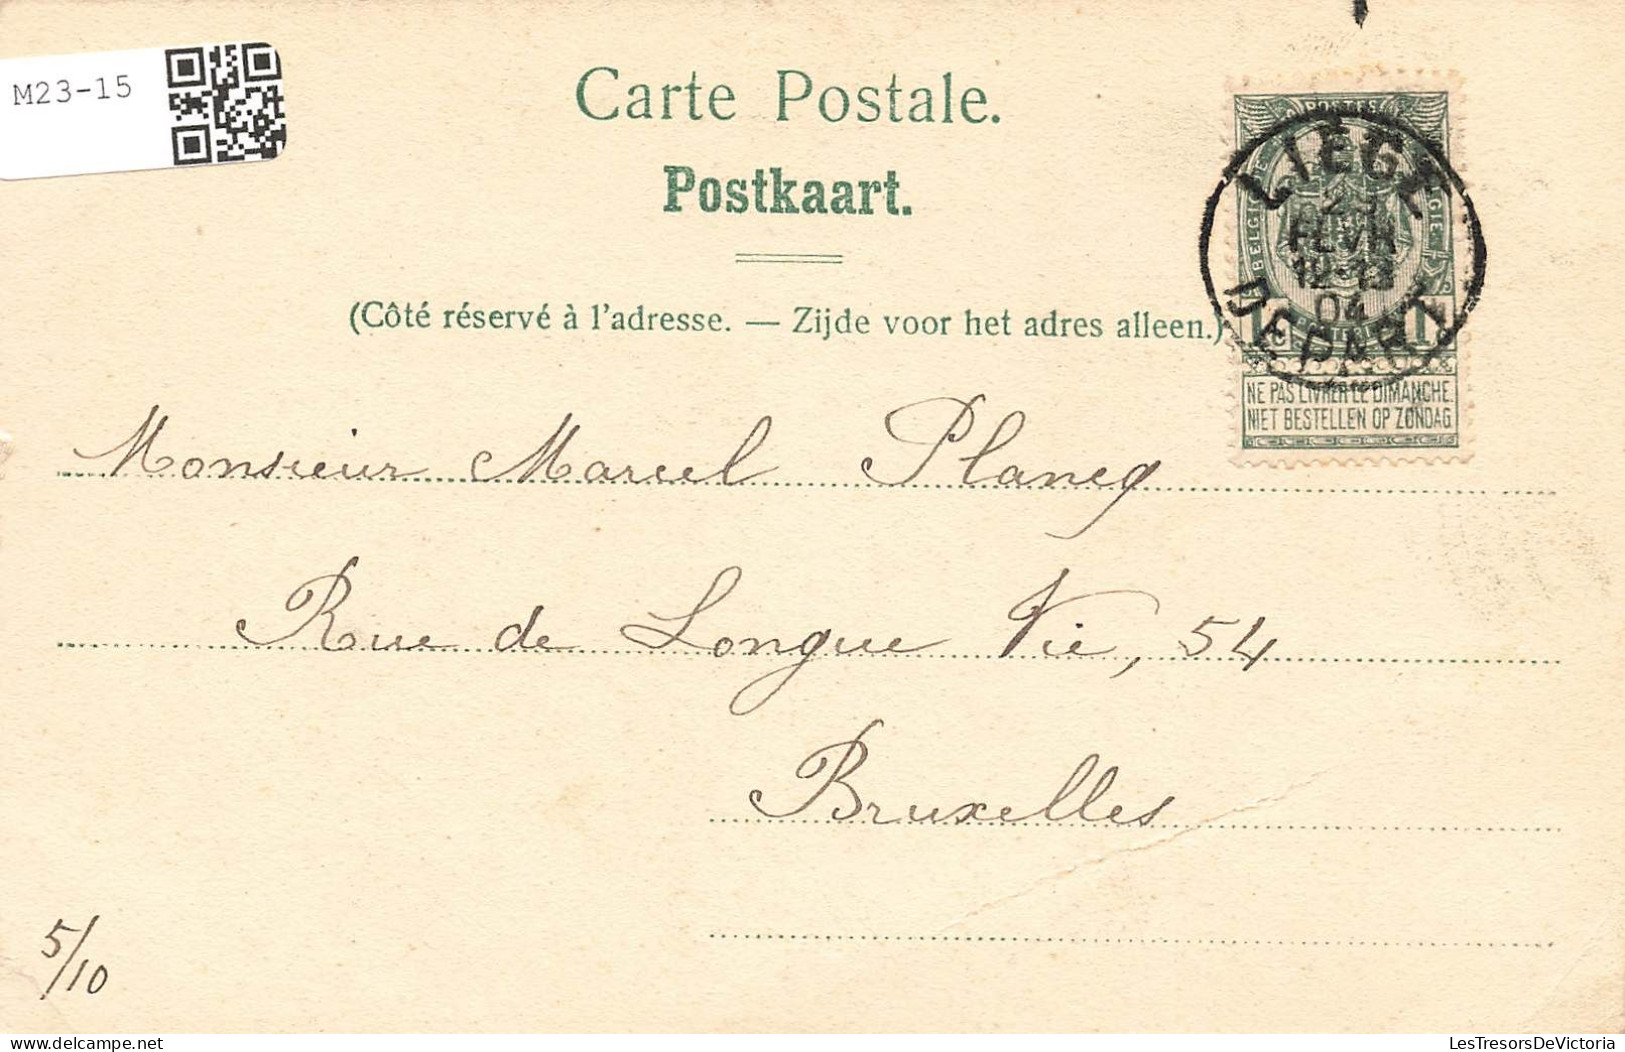 M23-15
Carte Postale.
Postkaart.
(Côté réservé à l'adresse. — Zijde voor het adres alleen.)
POSTES
BELGIQUE
BELGIE
LIÈGE
FEVR
04
DEPART
NE PAS LIVRER LE DIMANCHE.
NIET BESTELLEN OP ZONDAG.
Monsieur Marcel Plancq
Rue de Longue Vie, 54
Bruxelles
5/10
delcampe.net
LesTresorsDeVictoria